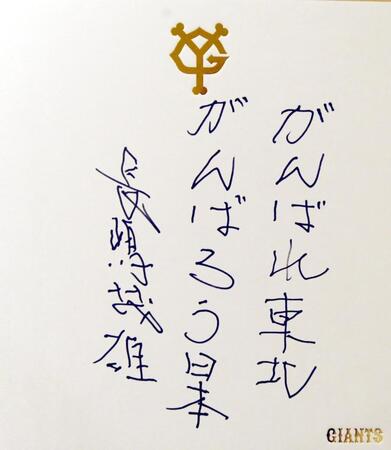 YG
がんばれ東北
がんばろう日本
長嶋茂雄
GIANTS